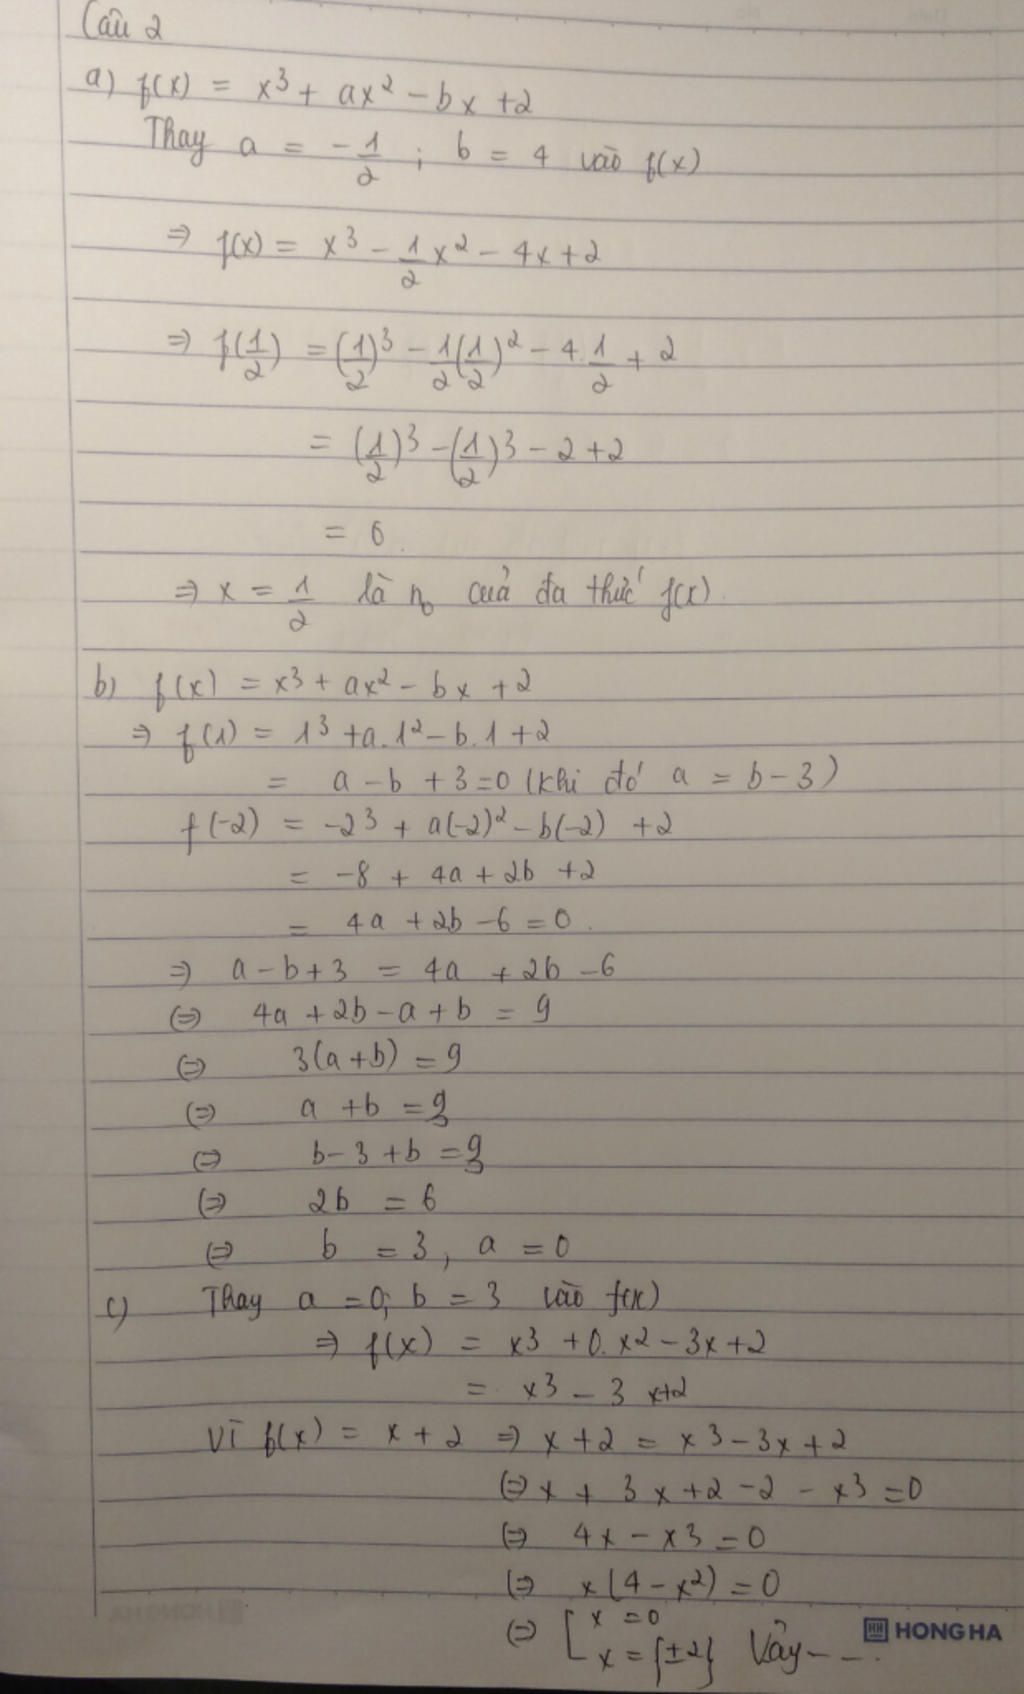 Câu 2
a) f(x) = x³ + ax² - bx + 2
Thay a = -1/2 ; b = 4 vào f(x)
⇒ f(x) = x³ - 1/2 x² - 4x + 2
⇒ f(1/2) = (1/2)³ - 1/2(1/2)² - 4.1/2 + 2
= (1/2)³ - (1/2)³ - 2 + 2
= 0
⇒ x = 1/2 là n₀ của đa thức f(x).
b) f(x) = x³ + ax² - bx + 2
⇒ f(1) = 1³ + a.1² - b.1 + 2
= a - b + 3 = 0 (khi đó a = b - 3)
f(-2) = -2³ + a(-2)² - b(-2) + 2
= -8 + 4a + 2b + 2
= 4a + 2b - 6 = 0.
⇒ a - b + 3 = 4a + 2b - 6
⇔ 4a + 2b - a + b = 9
⇔ 3(a + b) = 9
⇔ a + b = 3
⇔ b - 3 + b = 3
⇔ 2b = 6
⇔ b = 3, a = 0
c) Thay a = 0; b = 3 vào f(x)
⇒ f(x) = x³ + 0.x² - 3x + 2
= x³ - 3x + 2
Vì f(x) = x + 2 ⇒ x + 2 = x³ - 3x + 2
⇔ x + 3x + 2 - 2 - x³ = 0
⇔ 4x - x³ = 0
⇔ x(4 - x²) = 0
⇔ [ x = 0
x = {±2} Vậy - - .
HONG HA